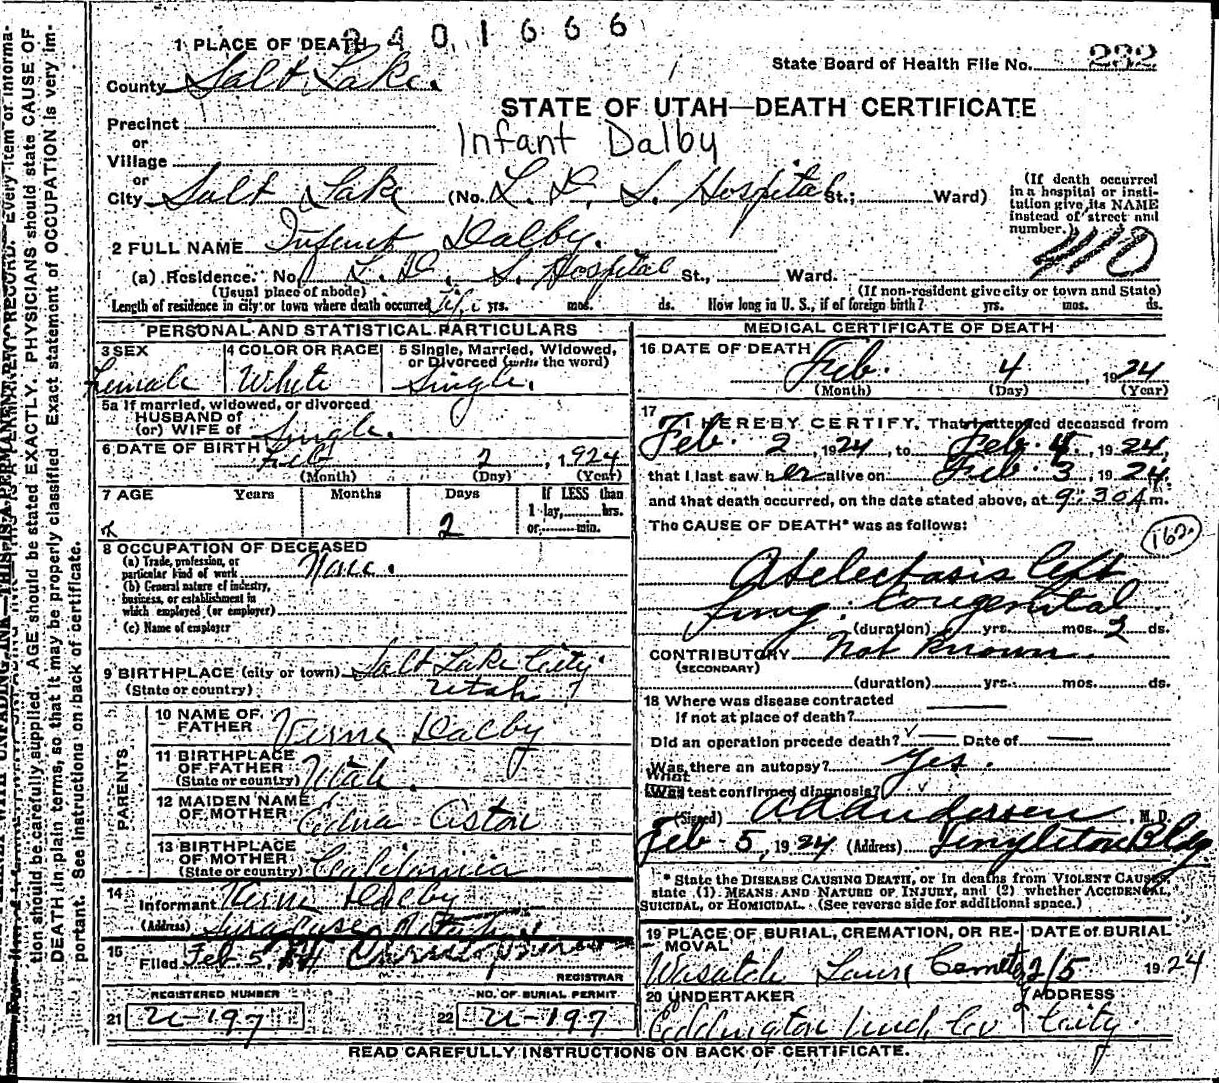 2401666
1 PLACE OF DEATH
State Board of Health File No. 232
County Salt Lake.
STATE OF UTAH—DEATH CERTIFICATE
Precinct
or
Infant Dalby
Village
or
City Salt Lake (No. L. D. S. Hospital St.; Ward)
(If death occurred
in a hospital or insti-
tution give its NAME
instead of street and
number.)
2 FULL NAME Infant Dalby.
(a) Residence. No. L. D. S. Hospital St., Ward.
(Usual place of abode) (If non-resident give city or town and State)
Length of residence in city or town where death occurred Life yrs. mos. ds. How long in U. S., if of foreign birth? yrs. mos. ds.
PERSONAL AND STATISTICAL PARTICULARS
3 SEX 4 COLOR OR RACE 5 Single, Married, Widowed,
or Divorced (write the word)
Female White Single.
5a If married, widowed, or divorced
HUSBAND of
(or) WIFE of Single.
6 DATE OF BIRTH Feb 2, 1924
(Month) (Day) (Year)
7 AGE Years Months Days If LESS than
1 day, hrs.
2 or min.
8 OCCUPATION OF DECEASED
(a) Trade, profession, or
particular kind of work None.
(b) General nature of industry,
business, or establishment in
which employed (or employer)
(c) Name of employer
9 BIRTHPLACE (city or town) Salt Lake City.
(State or country) Utah
PARENTS
10 NAME OF
FATHER Verne Dalby
11 BIRTHPLACE
OF FATHER
(State or country) Utah.
12 MAIDEN NAME
OF MOTHER Edna Aston
13 BIRTHPLACE
OF MOTHER
(State or country) California
14
Informant Verne Dalby
(Address) Syracuse
15
Filed Feb 5 24
REGISTRAR
REGISTERED NUMBER NO. OF BURIAL PERMIT
21 U-197 22 U-197
MEDICAL CERTIFICATE OF DEATH
16 DATE OF DEATH Feb. 4, 1924
(Month) (Day) (Year)
17
I HEREBY CERTIFY, That I attended deceased from
Feb. 2, 1924, to Feb. 4, 1924,
that I last saw her alive on Feb. 3, 1924,
and that death occurred, on the date stated above, at 9:30 A m.
The CAUSE OF DEATH* was as follows:
162
Atelectasis left
lung. Congenital
(duration) yrs. mos. 2 ds.
CONTRIBUTORY Not Known
(SECONDARY)
(duration) yrs. mos. ds.
18 Where was disease contracted
If not at place of death?
Did an operation precede death? Date of
Was there an autopsy? Yes.
What
test confirmed diagnosis?
(Signed) A A Anderson, M. D.
Feb - 5, 1924 (Address) Templeton Bldg.
* State the DISEASE CAUSING DEATH, or in deaths from VIOLENT CAUSES,
state (1) MEANS AND NATURE OF INJURY, and (2) whether ACCIDENTAL,
SUICIDAL, or HOMICIDAL. (See reverse side for additional space.)
19 PLACE OF BURIAL, CREMATION, OR RE-
MOVAL
DATE of BURIAL
Wasatch Lawn Cemety 2/5 1924
20 UNDERTAKER ADDRESS
Eddington Und. Co City.
READ CAREFULLY INSTRUCTIONS ON BACK OF CERTIFICATE.
WITH UNFADING INK—THIS IS A PERMANENT RECORD. Every item of informa-
tion should be carefully supplied. AGE should be stated EXACTLY. PHYSICIANS should state CAUSE OF
DEATH in plain terms, so that it may be properly classified. Exact statement of OCCUPATION is very im-
portant. See instructions on back of certificate.